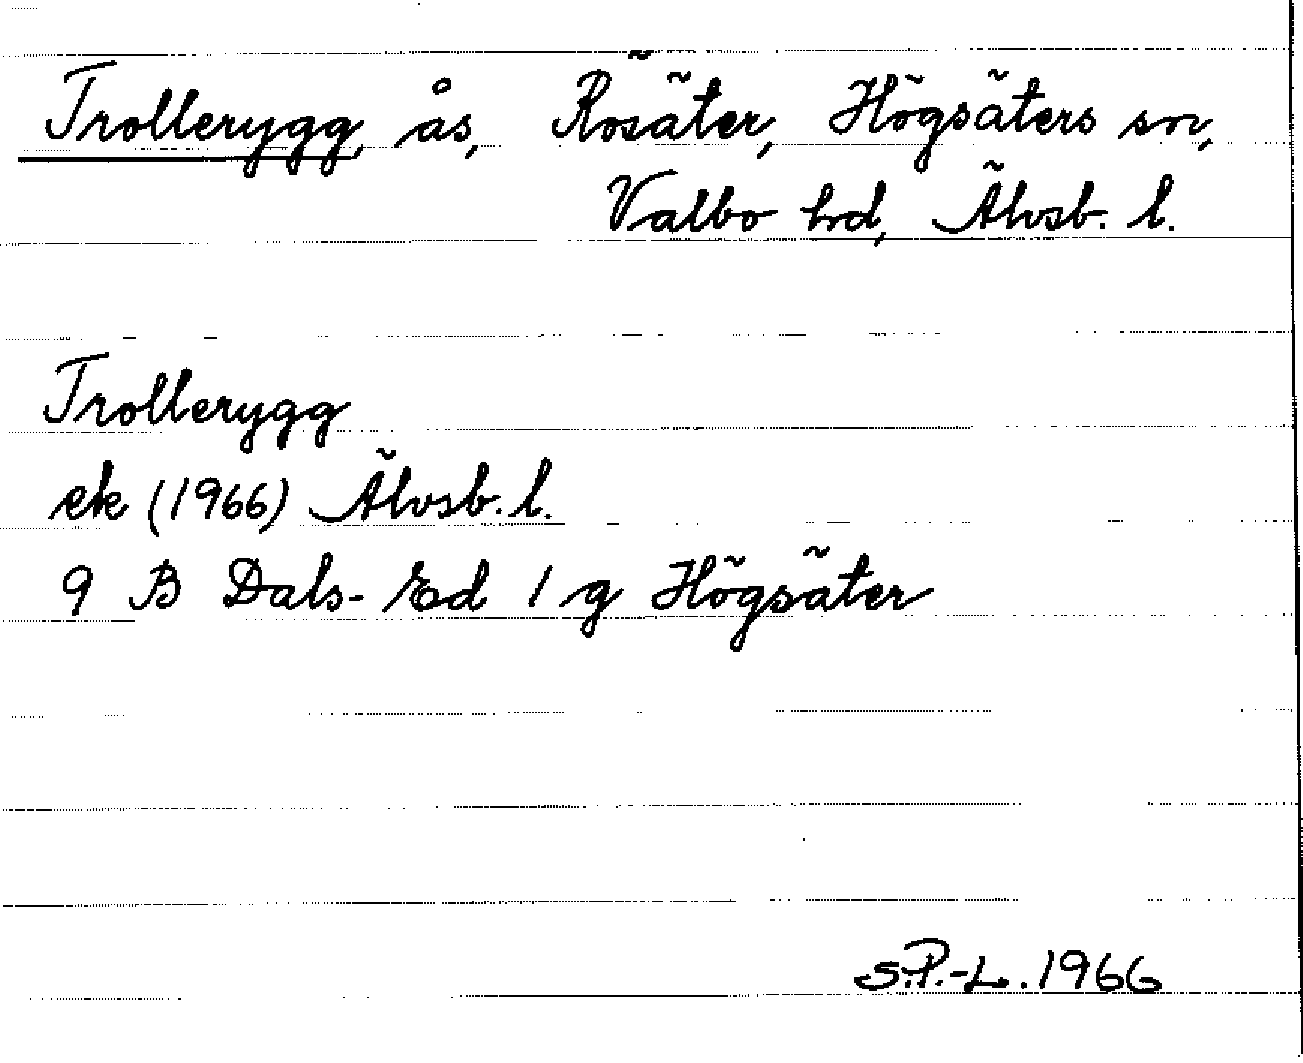 Trollerygg, ås, Rösäter, Högsäters sn,
Valbo hd, Älvsb. l.
Trollerygg
ek (1966) Älvsb. l.
9 B Dals-Ed 1 g Högsäter
S.P.-L. 1966